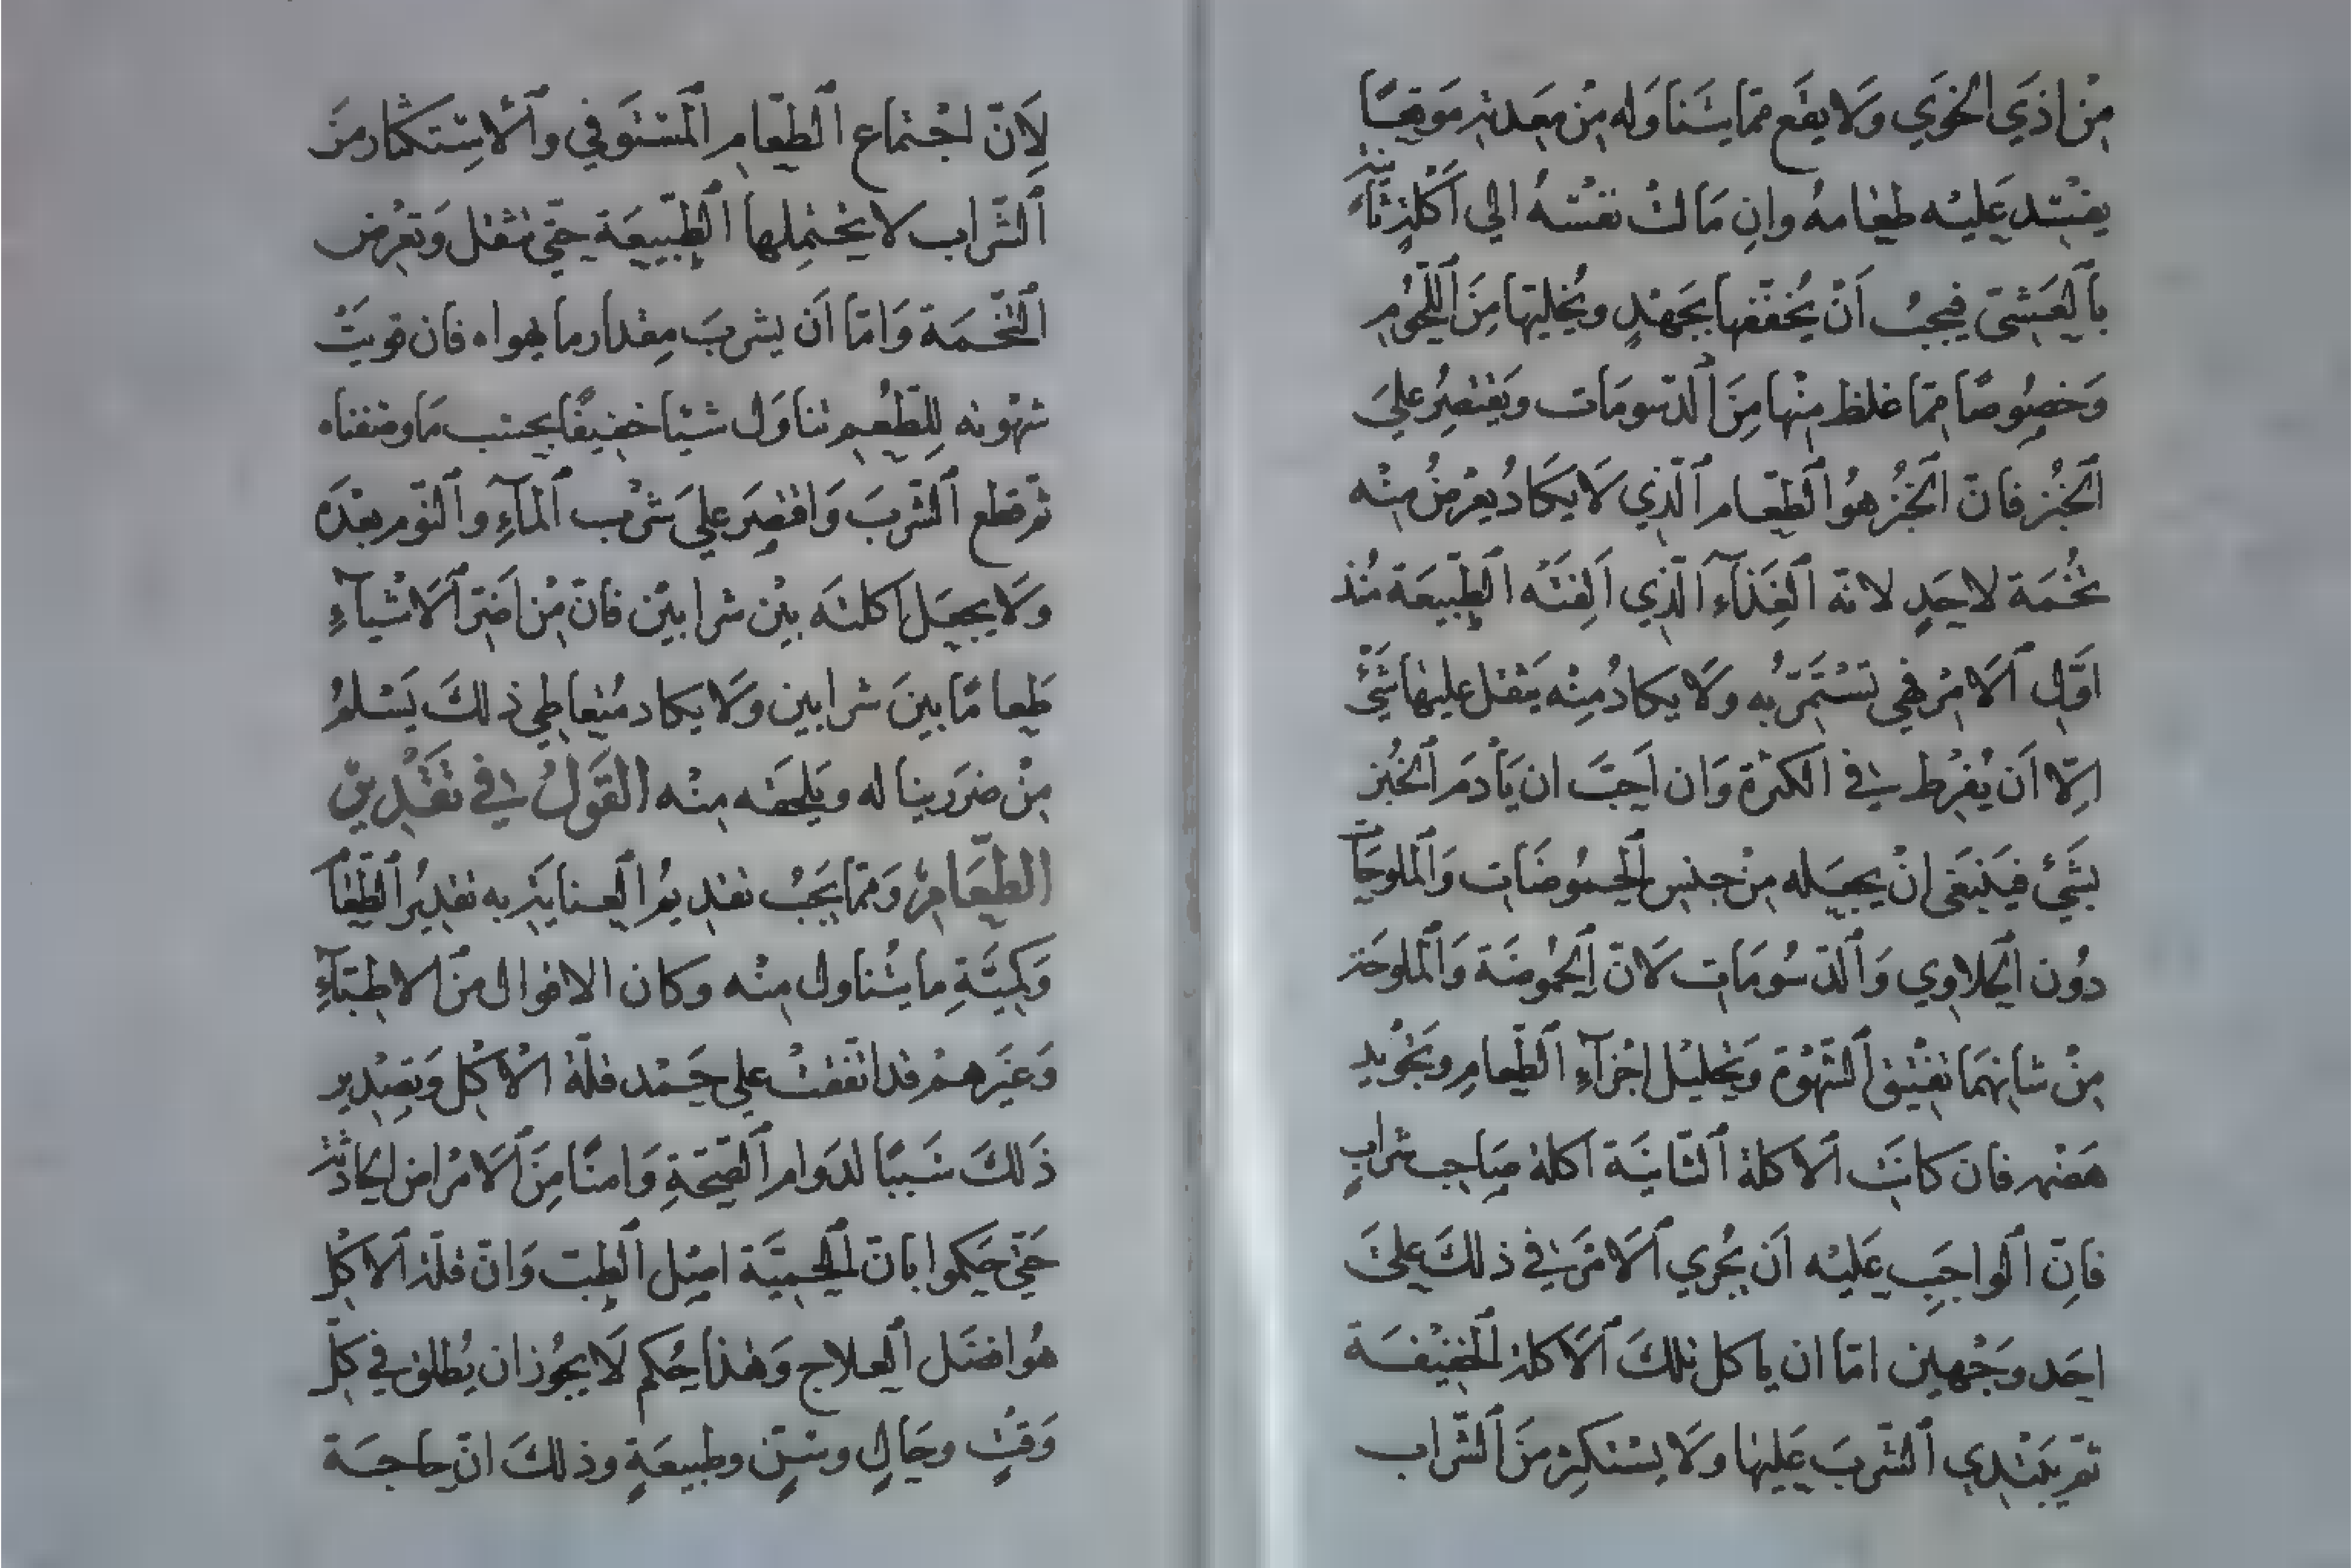 مِنْ اذَي الخوَي وَلا يقَع ممّا يتَناوَله مِنْ مَعِدته مَوقعًا
يفسُد عَليْه طعَامه وان مَالتْ نفسُهُ الي اَكْلةٍ ثَانية
بالعَشيّ فيجبُ اَنْ يُخفّفها بجَهْدٍ ويُخليها مِنَ اللّحُوم
وَخصُوصًا ممّا غلظ منْها مِنَ الدّسُومَات ويَقتصِرُ علي
الخبُز فانّ الخبُز هُوَ الطّعام الّذي لَا يكَادُ يعْرضُ منْه
تخُمَة لاحَدٍ لانّه الغِذآء الّذي اَلِفتْه الطّبيعَة مُنذ
اوَّل الاَمْر فهي تسْتَمرُّ به وَلَا يكادُ مِنْه يثقل عليهَا شَيْء
الّا اَن يُفرُط في الكثرة وَان احَبَّ ان يَأدمَ الخبُز
بشَيْء فيَنبَغي انْ يجعَله مِنْ جنس الحموُضَات وَالملوحَات
دوُن الحلاوي وَالدّسُومَات لاَنّ الحمُوضَة وَالملوحَة
مِنْ شانهمَا تفتيق الشّهْوَة وَتحليْل اجْزآءِ الطّعامِ وتجْويد
هَضْمه فان كانَت الاكلة الثّانيَة اكلة صَاحِب شَرابٍ
فانّ الوَاجَب عَليْه اَن يجُري الاَمْرَ في ذلكَ عَليَ
احَد وَجْهين امّا ان ياكل تلكَ الاَكلة الخفيْفَة
ثمّ يَبْتدي الشّربَ عَليهَا وَلَا يسْتكثِر منَ الشّراب
لِاَنّ اجْتماع الطّعَام المسْتَوفي وَالاسْتكثار منَ
الشّراب لا يحْتمِلها الطّبيعَة حتّي تثقل وَتعْرض
التّخمَة وَامّا اَن يشربَ مِقدار ما يهواه فان قويَتْ
شهوته لِلطّعم تناوَل شيًا خفيفًا بحسَب مَا وصَفناه
ثمّ قطع الشّربَ وَاقتصَر عليَ شُرْب المآءِ وَالنّوم بعْدَه
وَلَا يجعَل اكلتَه بيْن شرابيْن فانّ مِنْ اَضرّ الاَشْيآءِ
طَعامًا بينَ شرابين وَلَا يكاد مُتعاطي ذلكَ يَسْلمُ
مِنْ ضرَر ينالهُ ويَلحقه منْه القَولُ في تقْديرِ
الطّعَامِ وَممّا يجَبُ تقديمُ العنايَة به تقديرُ الطّعَام
وَكميَّةِ ما يتُناول منْه وكان الاقوال مِنَ الاطبّآءِ
وَغيَرهمْ قد اتّفقتْ علي حَمْد قلّة الاكْل وَتصْيير
ذَلكَ سَببًا لدَوَام الصّحّةِ وَامنًا مِنَ الاَمْراض الحادثة
حَتّي حَكموا بانّ الحميَّة اصْل الطبّ وَانّ قلّة الاكْل
هُوَ افضَل العِلاج وَهذا حُكم لَا يجُوز ان يُطلق في كلّ
وَقْتٍ وَحَالٍ وسِنّ وطبيعَةٍ وذلكَ انّ حاجَة